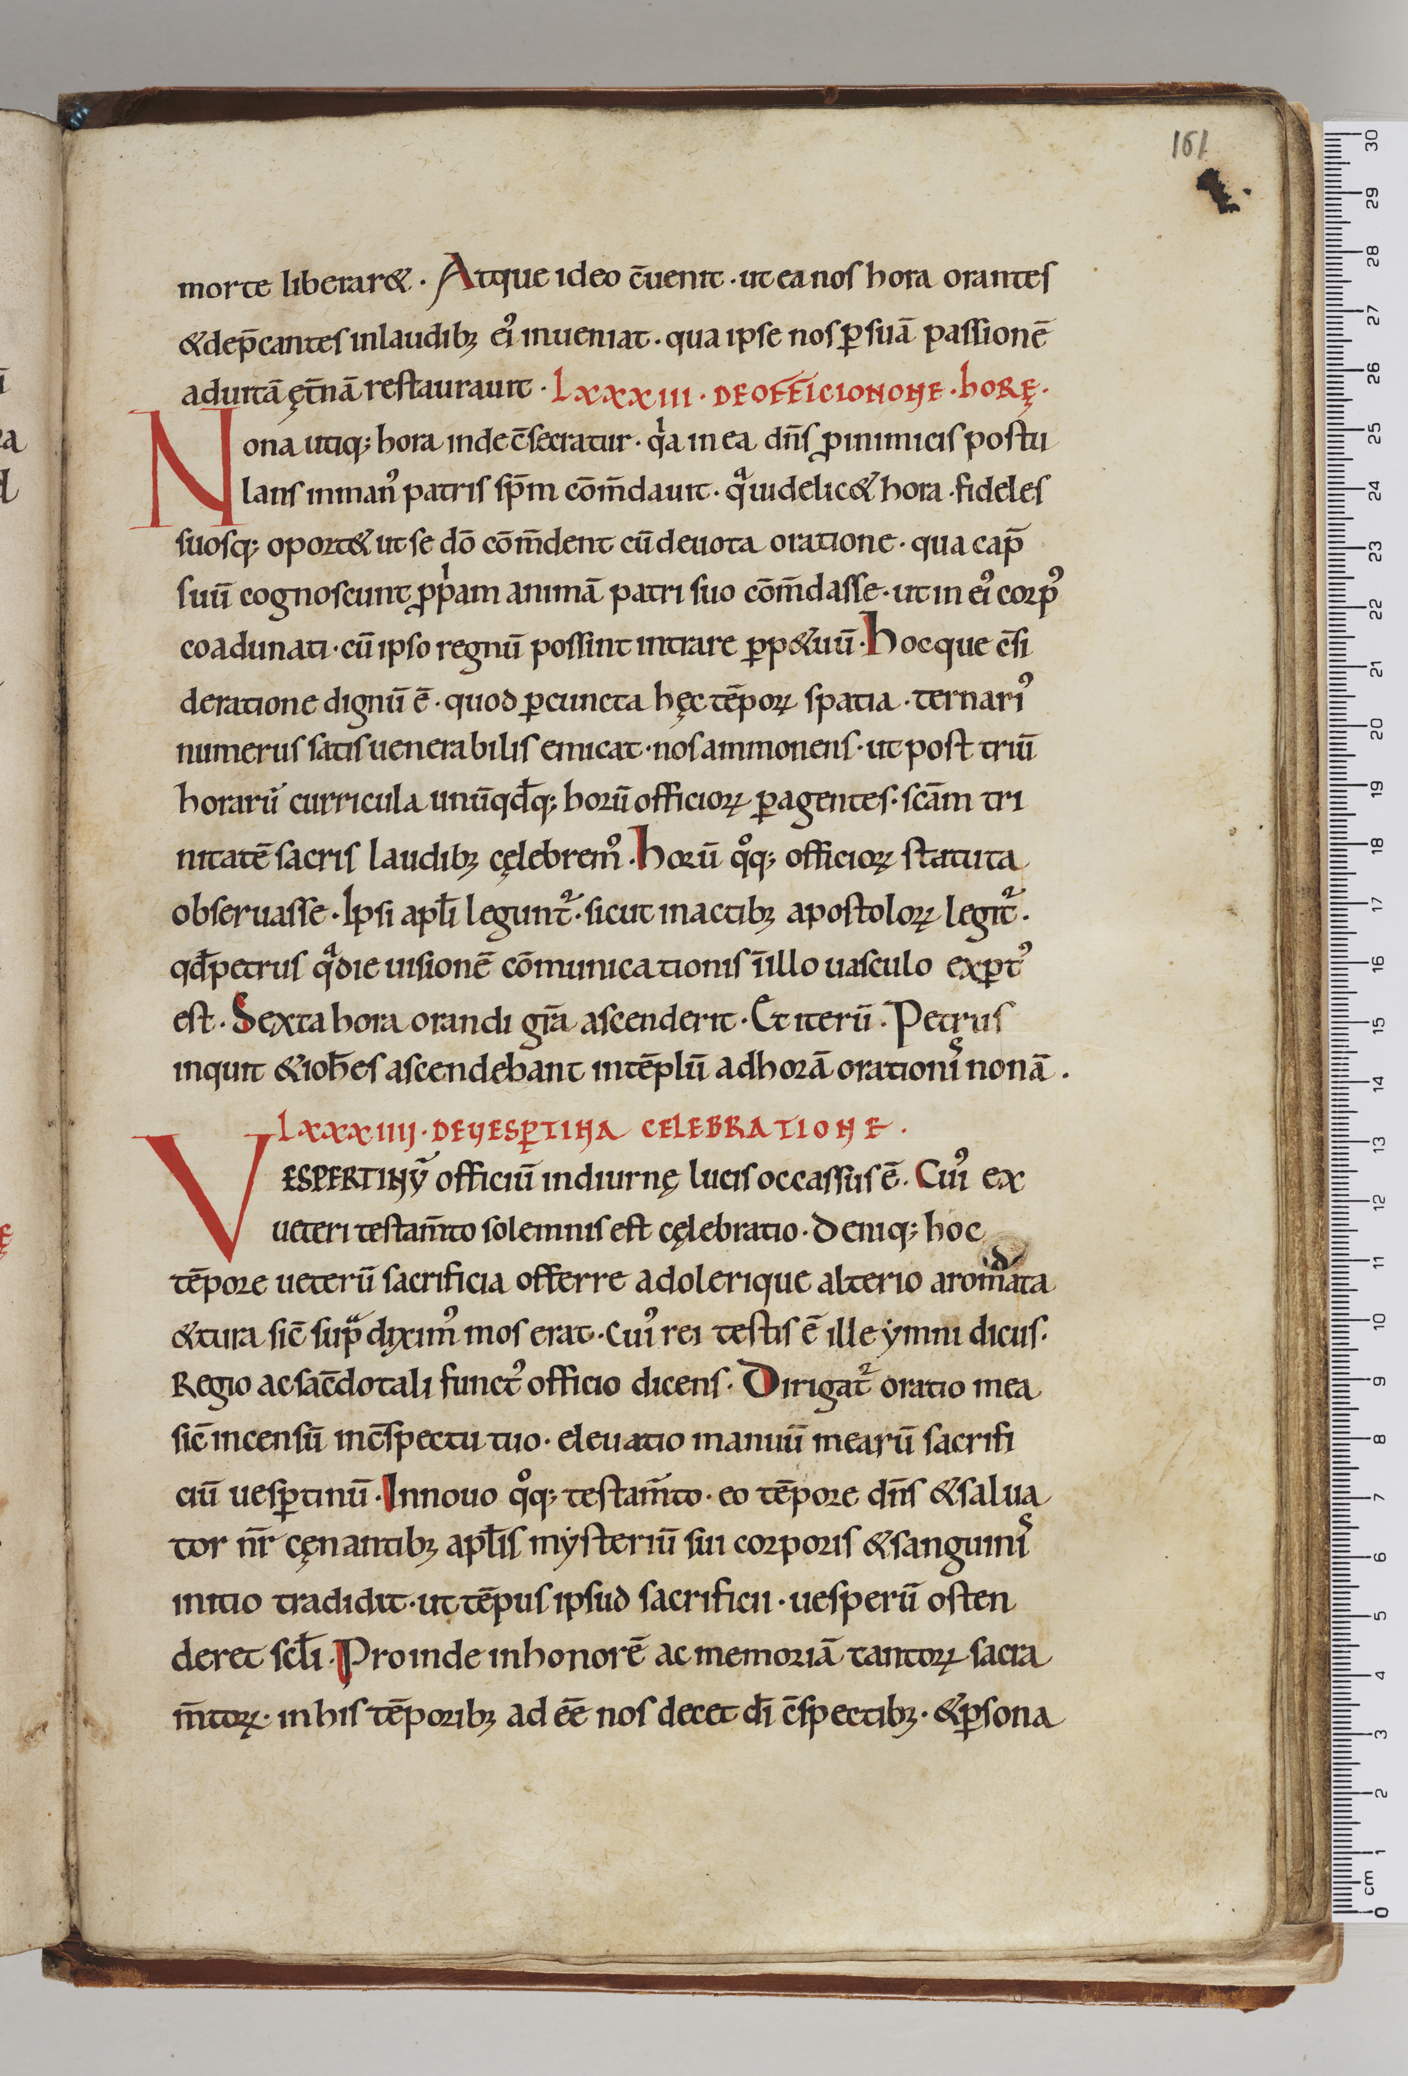 161
morte liberar&. Atque ideo c̄uenit · ut ea nos hora orantes
& dep̄cantes in laudibꝫ ei᾿ inueniat · qua ipse nos ꝑ suā passionē
ad uitā ęt̄nā restaurauit · LXXXIII · DE OFFICIO NONE · HORĘ ·
Nona utiq; hora inde c̄secratur · qͥa in ea dn̄s ꝓ inimicis postu
lans in man᾿ patris sp̄m cōm̄dauit · qͣ uidelic& hora · fideles
suosq; oport& ut se dō cōm̄dent cū deuota oratione · qua cap̄
suū cognoscunt ꝓpͥam animā patri suo cōm̄dasse · ut in ei᾿ corp᾿
coadunati · cū ipso regnū possint intrare ꝑp&uū · hocque c̄si
deratione dignū ē · quod ꝑ cuncta hęc tēporꝝ spatia · ternari᾿
numerus satis uenerabilis emicat · nos ammonens · ut post triū
horarū curricula unūqđq; horū officiorꝝ ꝑagentes · scām tri
nitatē sacris laudibꝫ cęlebrem᾿ · horū qͦq; officiorꝝ statuta
obseruasse · Ipsi apłi legunt᷑ · sicut in actibꝫ apostolorꝝ legit᷑ ·
qđ petrus qͣ die uisionē cōmunicationis ī illo uasculo exꝑt᾿
est · Sexta hora orandi gr̄a ascenderit · Et iterū · Petrus
inquit & ioħes ascendebant in tēplū ad horā orationis nonā .
LXXXIIII · DE UESꝑTINA CELEBRATIONE .
VESPERTINŪ officiū in diurnę lucis occassus ē · Cui᾿ ex
ueteri testam̄to solemnis est cęlebratio · Deniq; hoc
d
tēpore ueterū sacrificia offerre adolerique alterio aromata
& tura sic̄ supͣ dixim᾿ mos erat · Cui᾿ rei testis ē ille ẏmni dicus ·
Regio ac sac̄dotali funct᾿ officio dicens · Dirigat᷑ oratio mea
sic̄ incensū in c̄spectu tuo · eleuatio manuū mearū sacrifi
ciū uesꝑtinū · In nouo qͦq; testam̄to · eo tēpore dn̄s & salua
tor nr̄ cęnantibꝫ apłis mẏsteriū sui corporis & sanguinis
initio tradidit · ut tēpus ipsud sacrificii · uesperū osten
deret scłi · Proinde in honorē ac memoriā tantorꝝ sacra
m̄torꝝ · in his tēporibꝫ ad eē nos decet dī c̄spectibꝫ · & ꝑsona